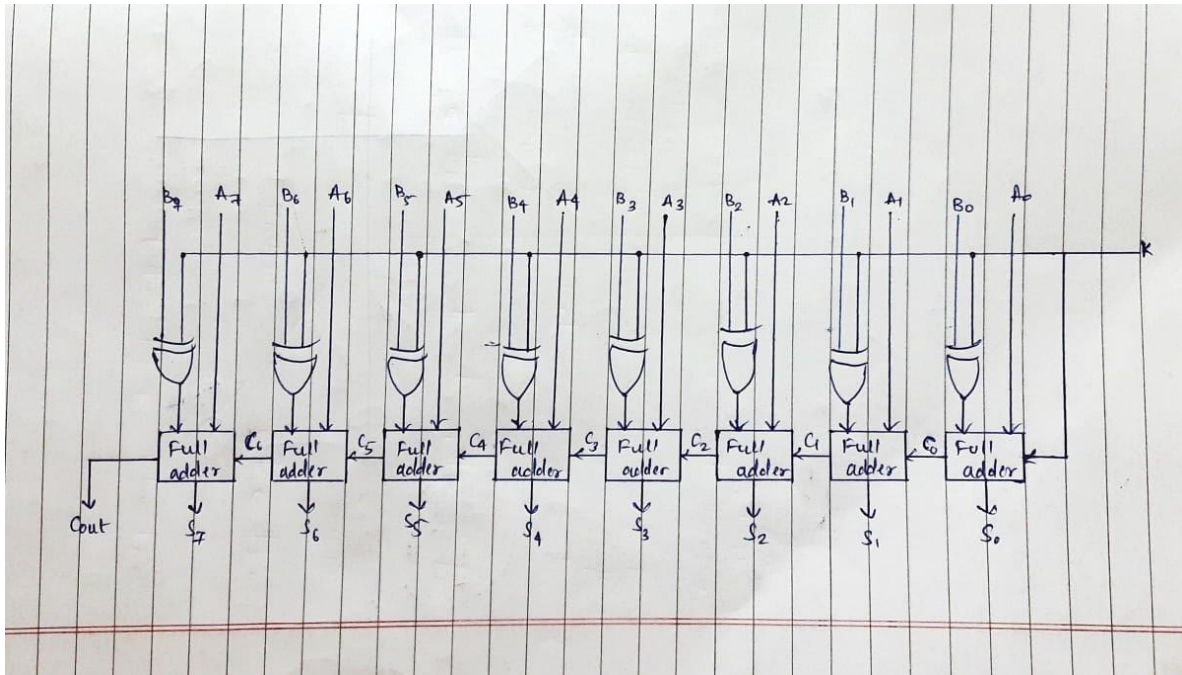 B7 A7 B6 A6 B5 A5 B4 A4 B3 A3 B2 A2 B1 A1 B0 A0
K
Full adder C6 Full adder C5 Full adder C4 Full adder C3 Full adder C2 Full adder C1 Full adder C0 Full adder
Cout S7 S6 S5 S4 S3 S2 S1 S0